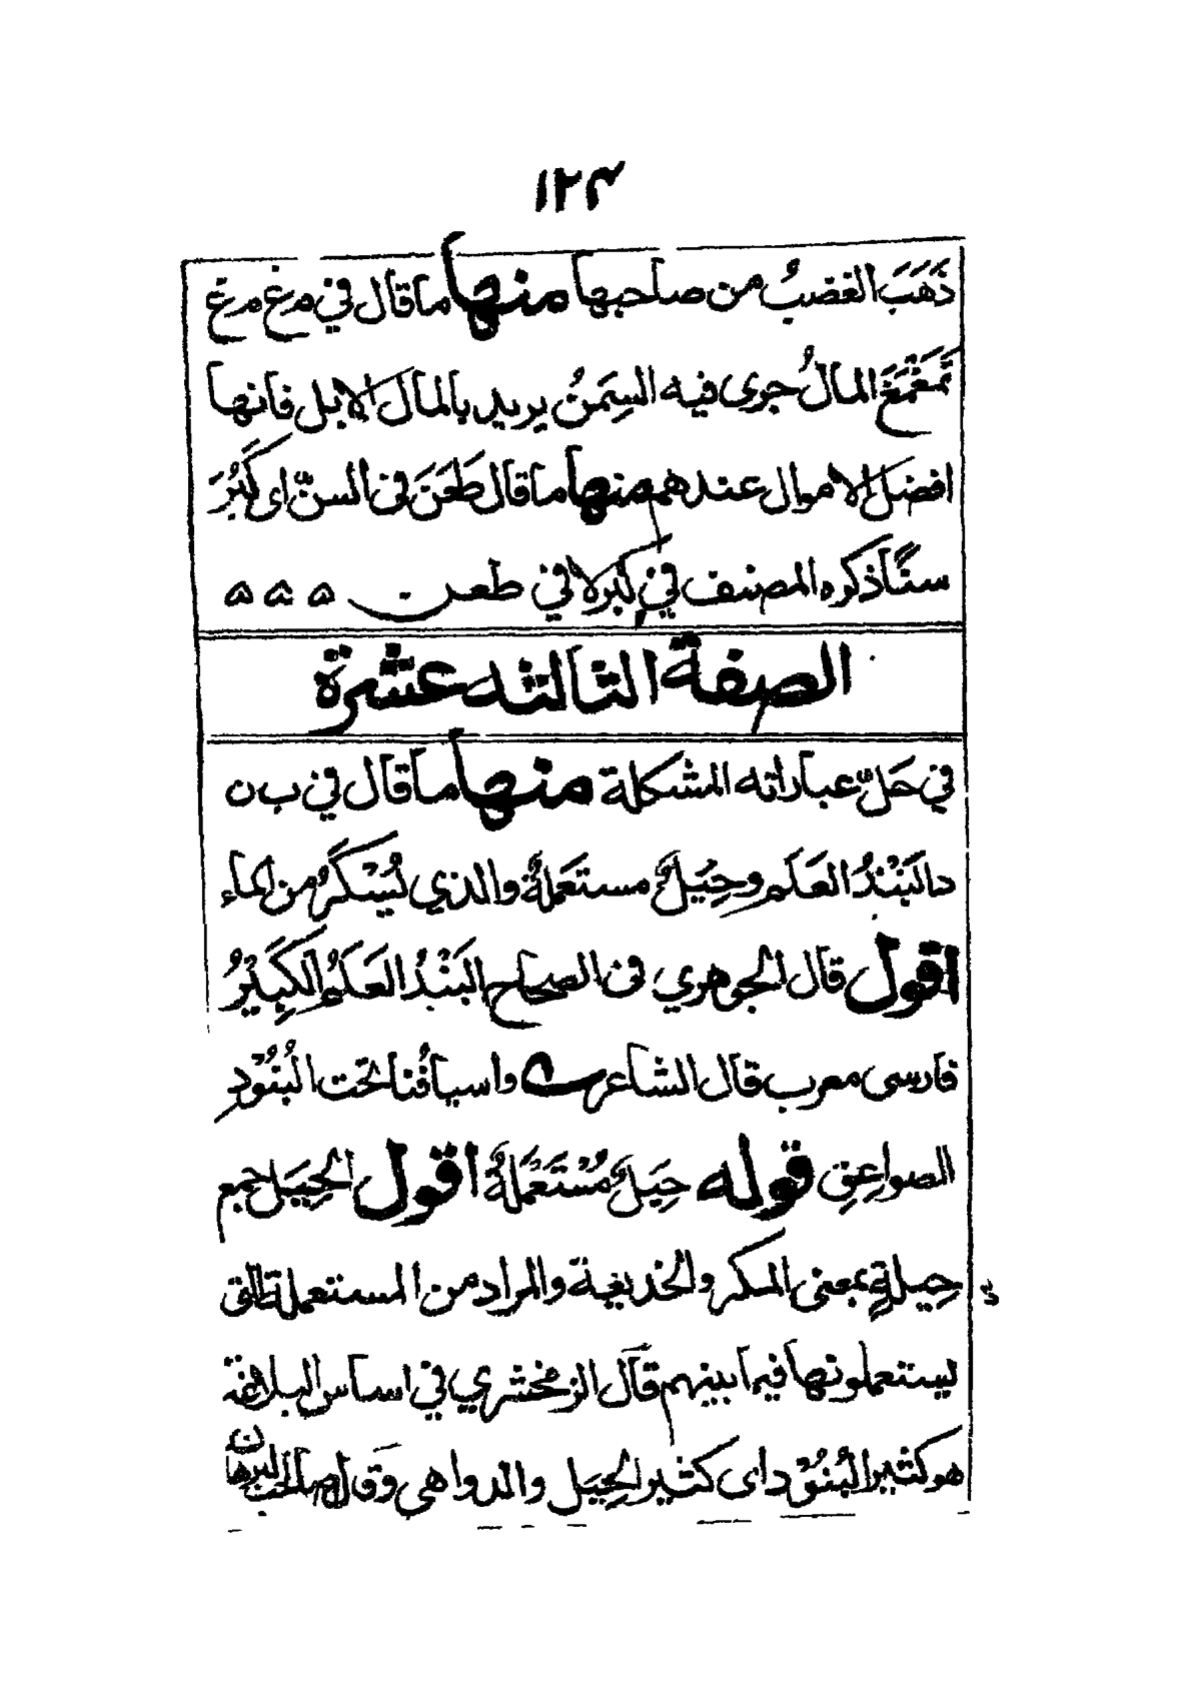 ١٢٣
ذَهَبَ الغضبُ من صاحبها منها ما قال في م غ م غ
تَمَغْمَغَ المالُ جرى فيه السِمَنُ يريد بالمال الابل فانها
افضل الاموال عندهم منها ما قال طَعَنَ في السنّ اى كَبُرَ
سنًّا ذكره المصنف في كبر لا في طعن ۵ ۵ ۵
الصفة الثالثه عشرة
في حَلّ عباراته المشكلة منها ما قال في ب ن
د البَنْدُ العَلَم وحِيَلٌ مستعَملةٌ والذي يُسْكَرُ من الماء
اقول قال الجوهري في الصحاح البَنْدُ العَلَمُ الكَبِيْرُ
فارسى معرب قال الشاعر ؎ واسيافُنا تحت البُنُوْدِ
الصواعِق قوله حِيَلٌ مُسْتَعْمَلَةٌ اقول الحِيَل جمع
حِيلةٍ بمعنى المكر والخديعة والمراد من المستعملة التى
يستعملونها فيما بينهم قال الزمخشري في اساس البلاغة
هو كثير البُنُوْد اى كثير الحِيَل والدواهى وقال صاحب البرهان